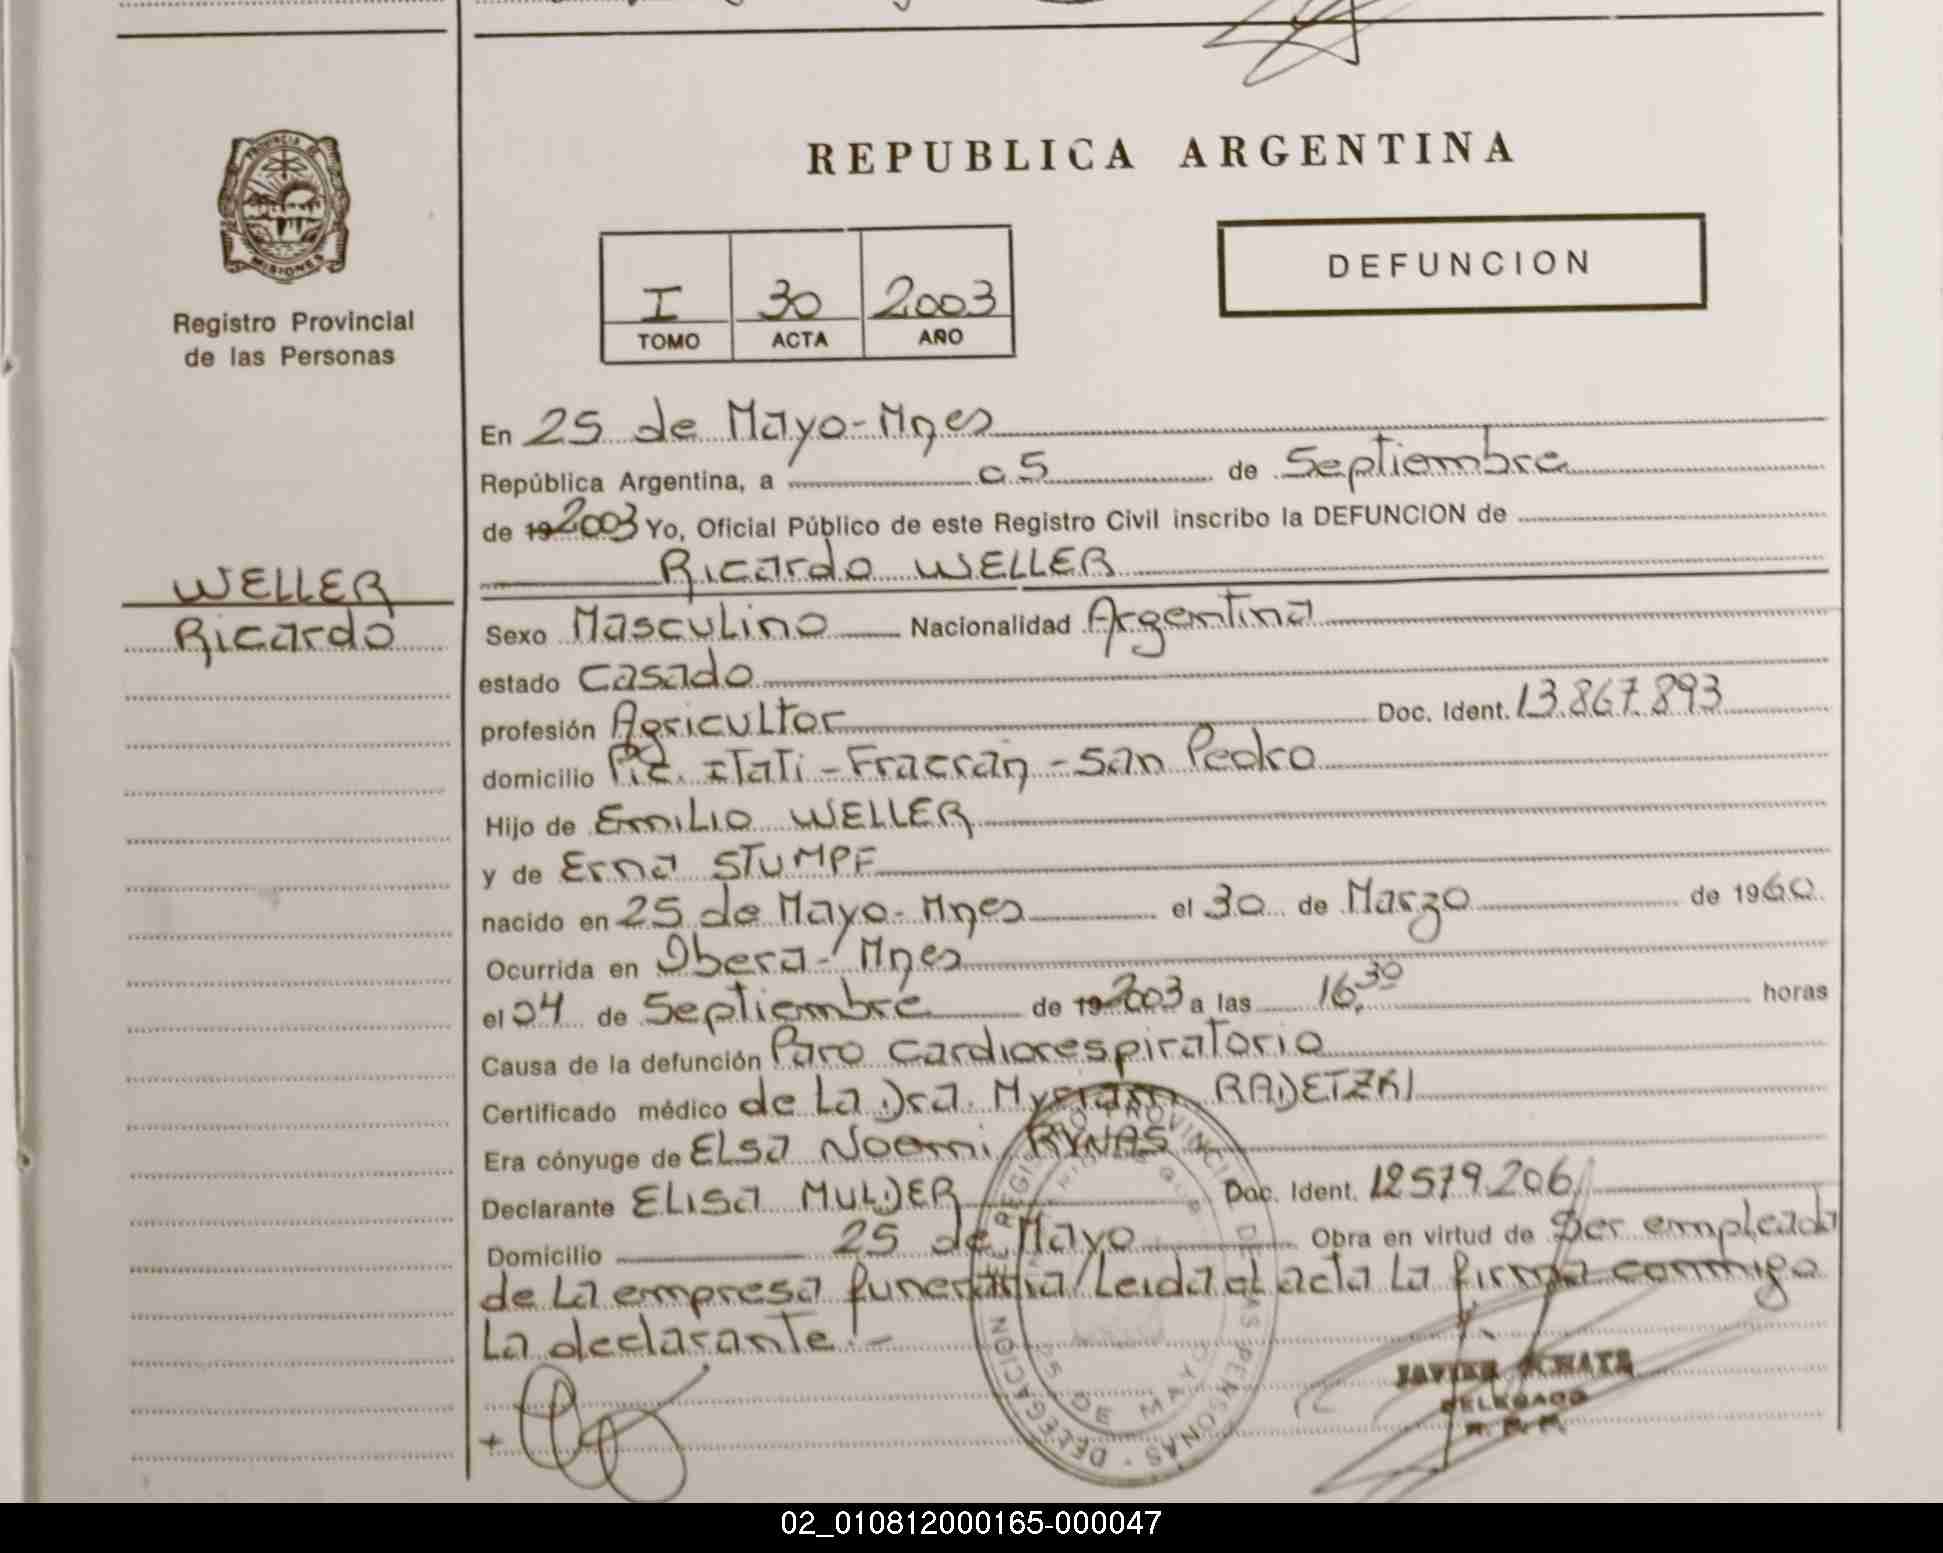 PROVINCIA DE
MISIONES
Registro Provincial
de las Personas
WELLER
Ricardo
REPUBLICA ARGENTINA
I 30 2003
TOMO ACTA AÑO
DEFUNCION
En 25 de Mayo-Mnes
República Argentina, a 05 de Septiembre
de 19 2003 Yo, Oficial Público de este Registro Civil inscribo la DEFUNCION de
Ricardo WELLER
Sexo Masculino Nacionalidad Argentina
estado Casado
profesión Agricultor Doc. Ident. 13.867.893
domicilio Pic. Itati - Fracran - San Pedro
Hijo de Emilio WELLER
y de Erna STUMPF
nacido en 25 de Mayo-Mnes el 30 de Marzo de 1960
Ocurrida en Obera - Mnes
el 04 de Septiembre de 19 2003 a las 16,30 horas
Causa de la defunción Paro cardiorespiratorio
Certificado médico de la Dra. Myriam RADETZKI
Era cónyuge de Elsa Noemi RYNAS
Declarante Elisa MULDER Doc. Ident. 12579.206
Domicilio 25 de Mayo Obra en virtud de Ser empleada
de la empresa funeraria/Leida el acta la firma conmigo
la declarante.-
REGISTRO PROVINCIAL DE LAS PERSONAS - DELEGACION
25 DE MAYO
JAVIER
DELEGADO
02_010812000165-000047